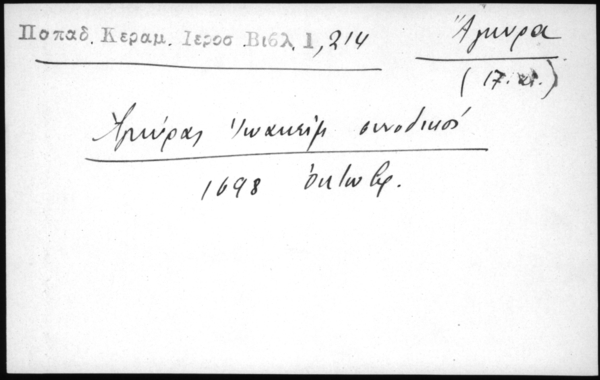 Παπαδ. Κεραμ. Ιεροσ. Βιβλ 1, 214
Ἄγκυρα
(17. αι.)
Ἀγκύρας Ἰωακείμ συνοδικοῦ
1698 Ὀκτωβρ.